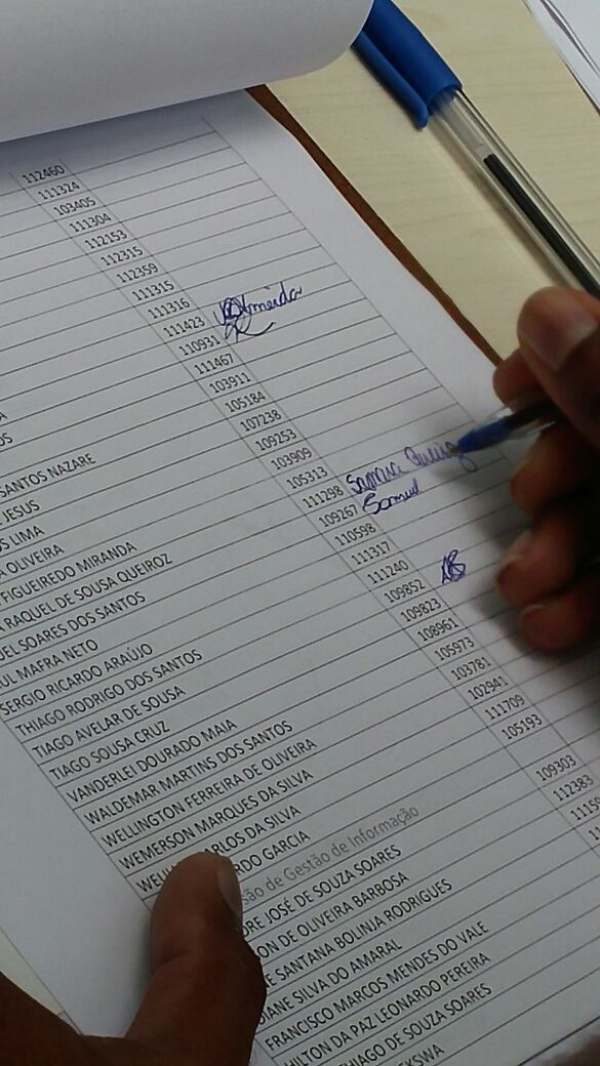 112460
111324
103405
111304
112153
112315
112359
111315
111316
111423 Almeida
110931
111467
103911
SANTOS NAZARE 105184
JESUS 107238
LIMA 109253
OLIVEIRA 103909
FIGUEIREDO MIRANDA 105313
RAQUEL DE SOUSA QUEIROZ 111298 Samira Queiroz
UEL SOARES DOS SANTOS 109267 Samuel
UL MAFRA NETO 110598
SERGIO RICARDO ARAÚJO 111317
THIAGO RODRIGO DOS SANTOS 111240
TIAGO AVELAR DE SOUSA 109852
TIAGO SOUSA CRUZ 109823
VANDERLEI DOURADO MAIA 108961
WALDEMAR MARTINS DOS SANTOS 105973
WELLINGTON FERREIRA DE OLIVEIRA 103781
WEMERSON MARQUES DA SILVA 102941
ARLOS DA SILVA 111709
RDO GARCIA 105193
são de Gestão de Informação
DRE JOSÉ DE SOUZA SOARES 109303
ON DE OLIVEIRA BARBOSA 112383
E SANTANA BOLINJA RODRIGUES
DIANE SILVA DO AMARAL
FRANCISCO MARCOS MENDES DO VALE
HILTON DA PAZ LEONARDO PEREIRA
THIAGO DE SOUZA SOARES
EKSWA